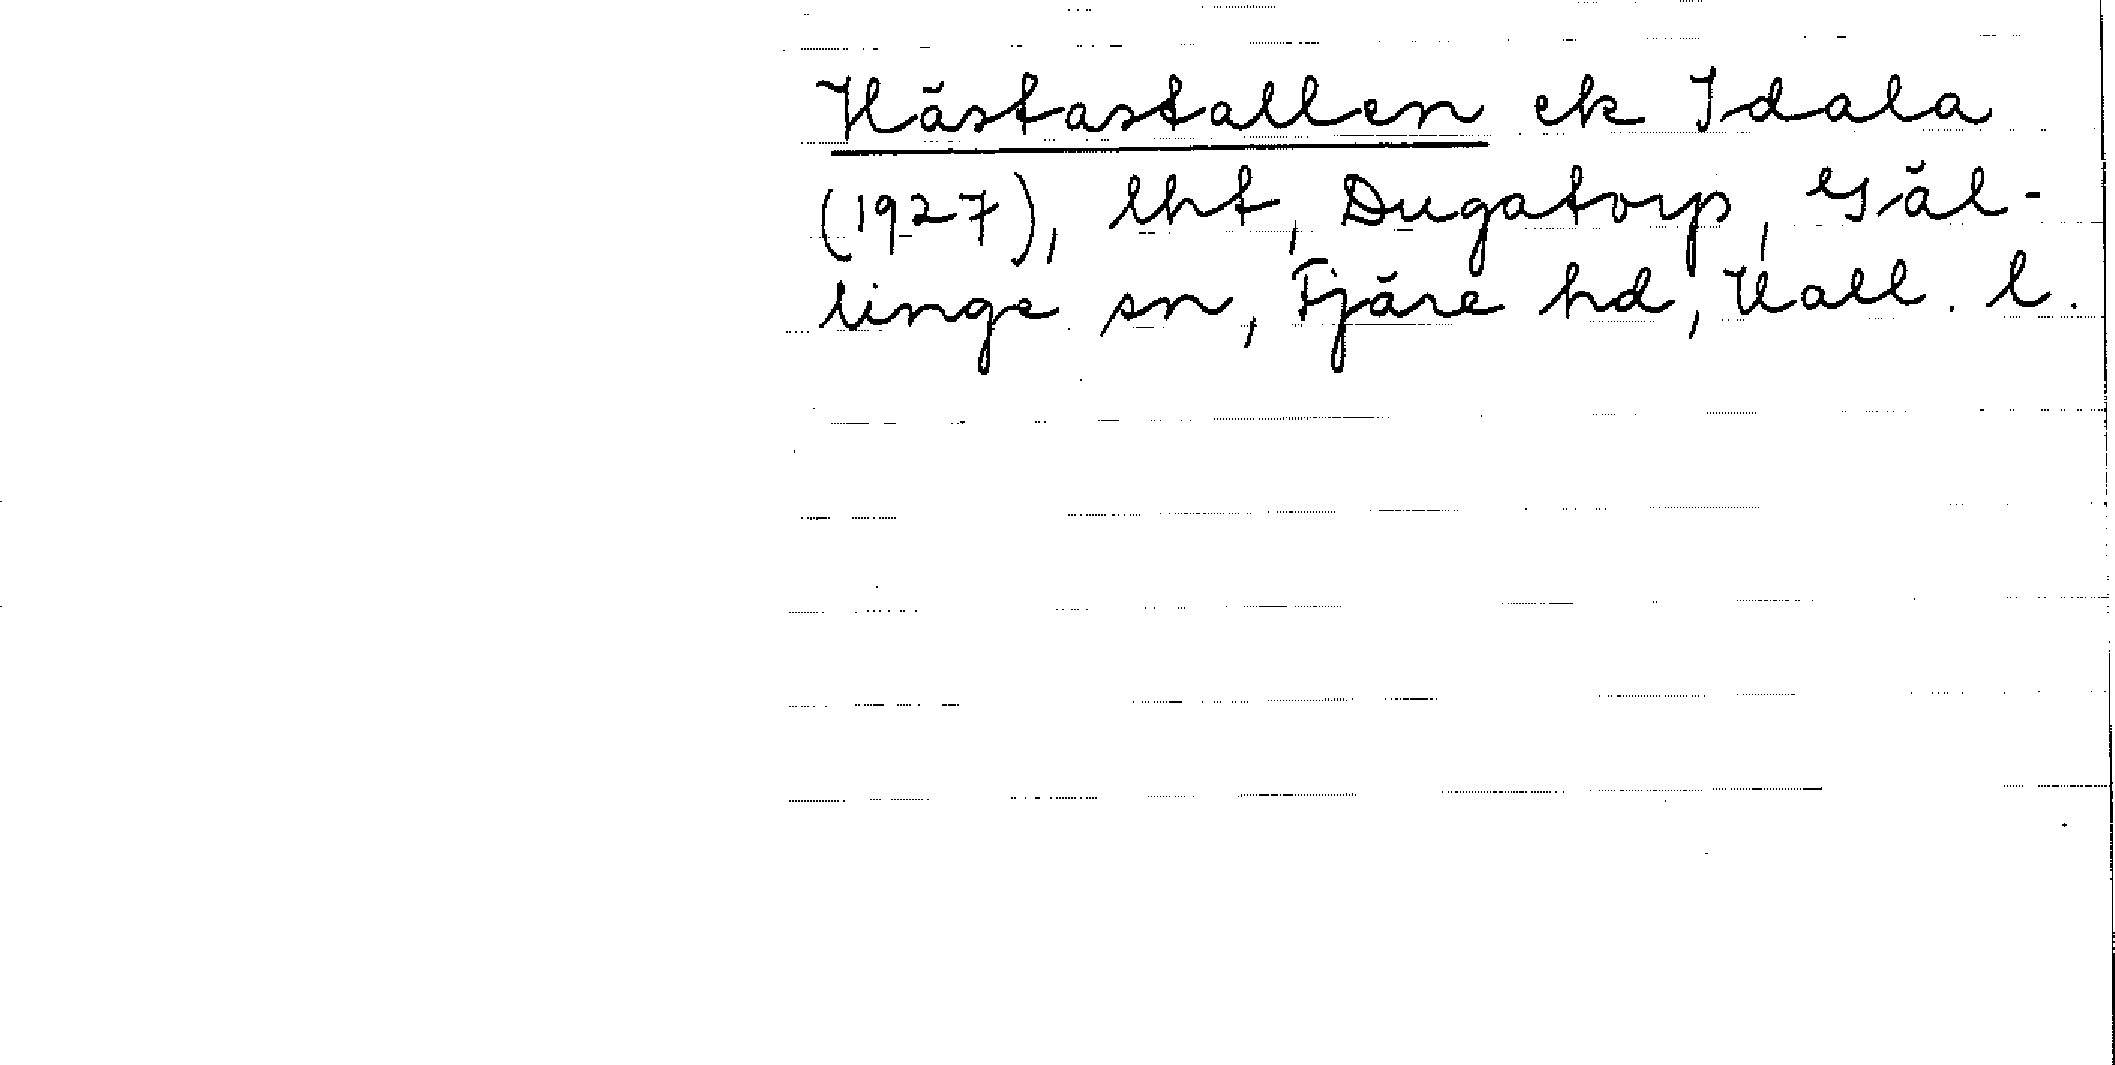 Hästastallen ek Idala
(1927), lht, Dugatorp, Gäl-
linge sn, Fjäre hd, Hall. l.